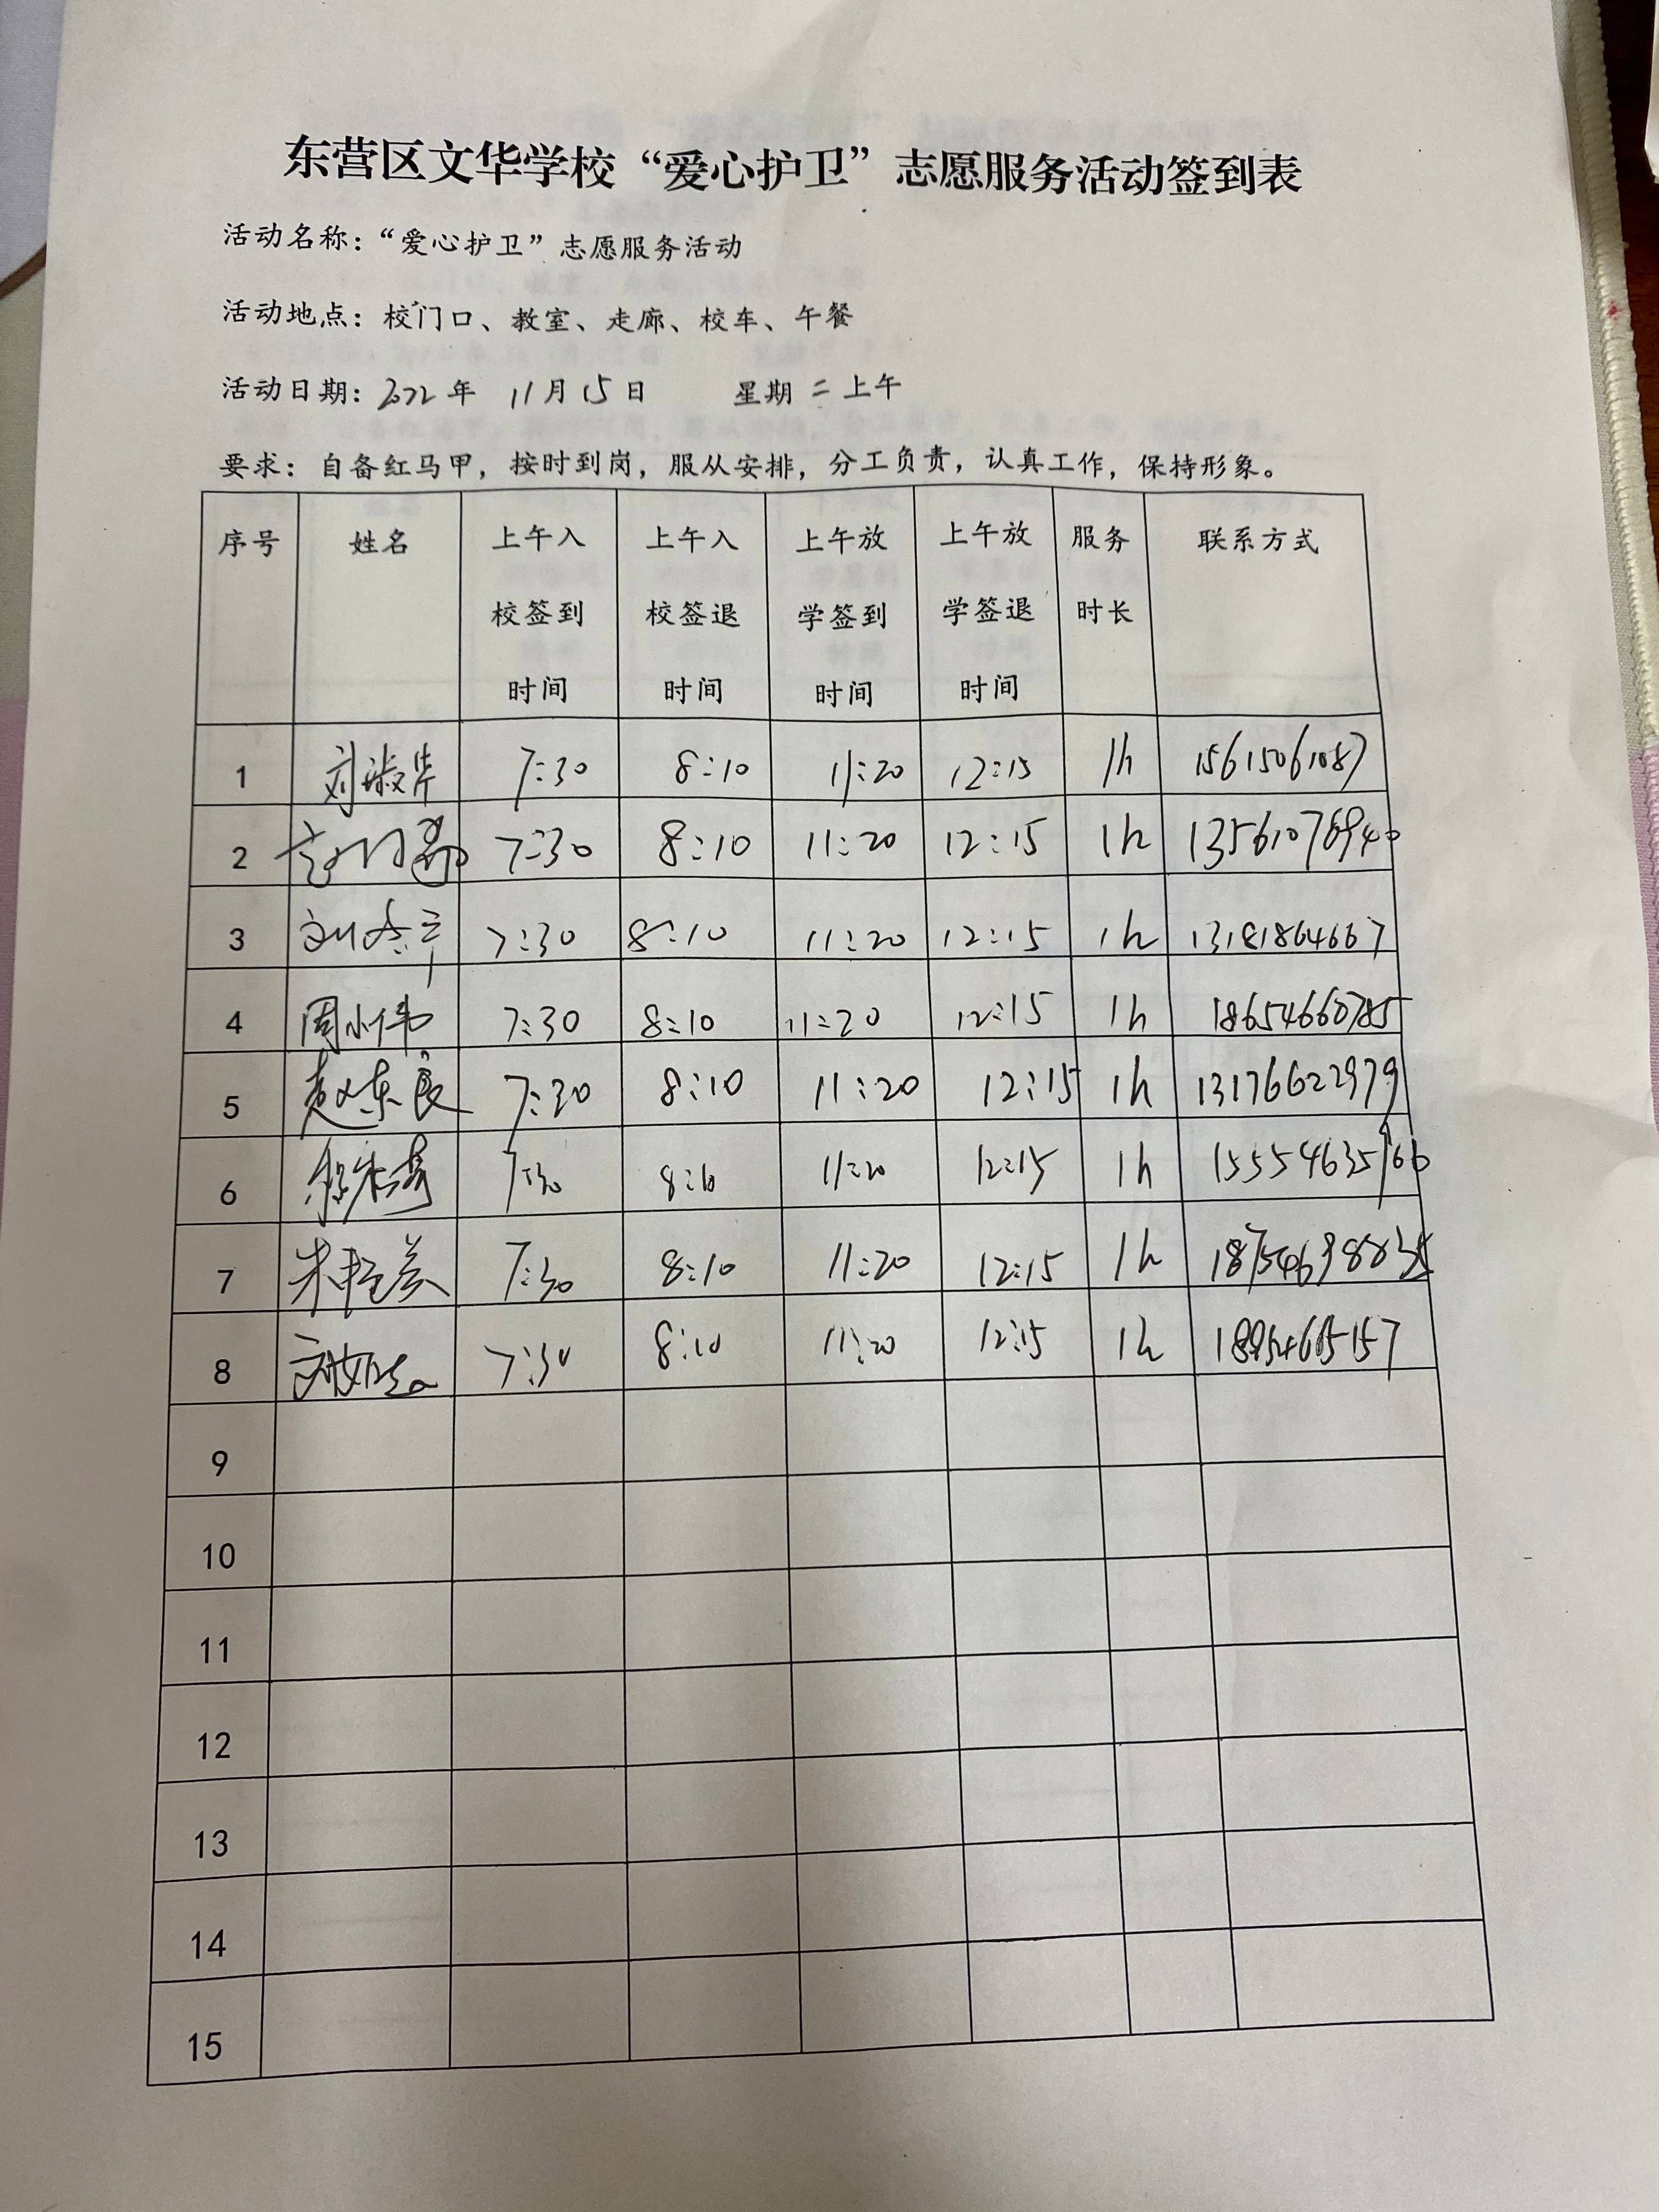 东营区文华学校“爱心护卫”志愿服务活动签到表
活动名称：“爱心护卫”志愿服务活动
活动地点：校门口、教室、走廊、校车、午餐
活动日期：2022年 11月15日 星期二上午
要求：自备红马甲，按时到岗，服从安排，分工负责，认真工作，保持形象。
序号 姓名 上午入校签到时间 上午入校签退时间 上午放学签到时间 上午放学签退时间 服务时长 联系方式
1 刘淑芹 7:30 8:10 11:20 12:15 1h 15615061087
2 7:30 8:10 11:20 12:15 1h
3 7:30 8:10 11:20 12:15 1h 13181864667
4 周小伟 7:30 8:10 11:20 12:15 1h 18654660785
5 赵东良 7:30 8:10 11:20 12:15 1h 13176622979
6 7:30 8:10 11:20 12:15 1h 15554635166
7 7:30 8:10 11:20 12:15 1h
8 7:30 8:10 11:20 12:15 1h
9
10
11
12
13
14
15